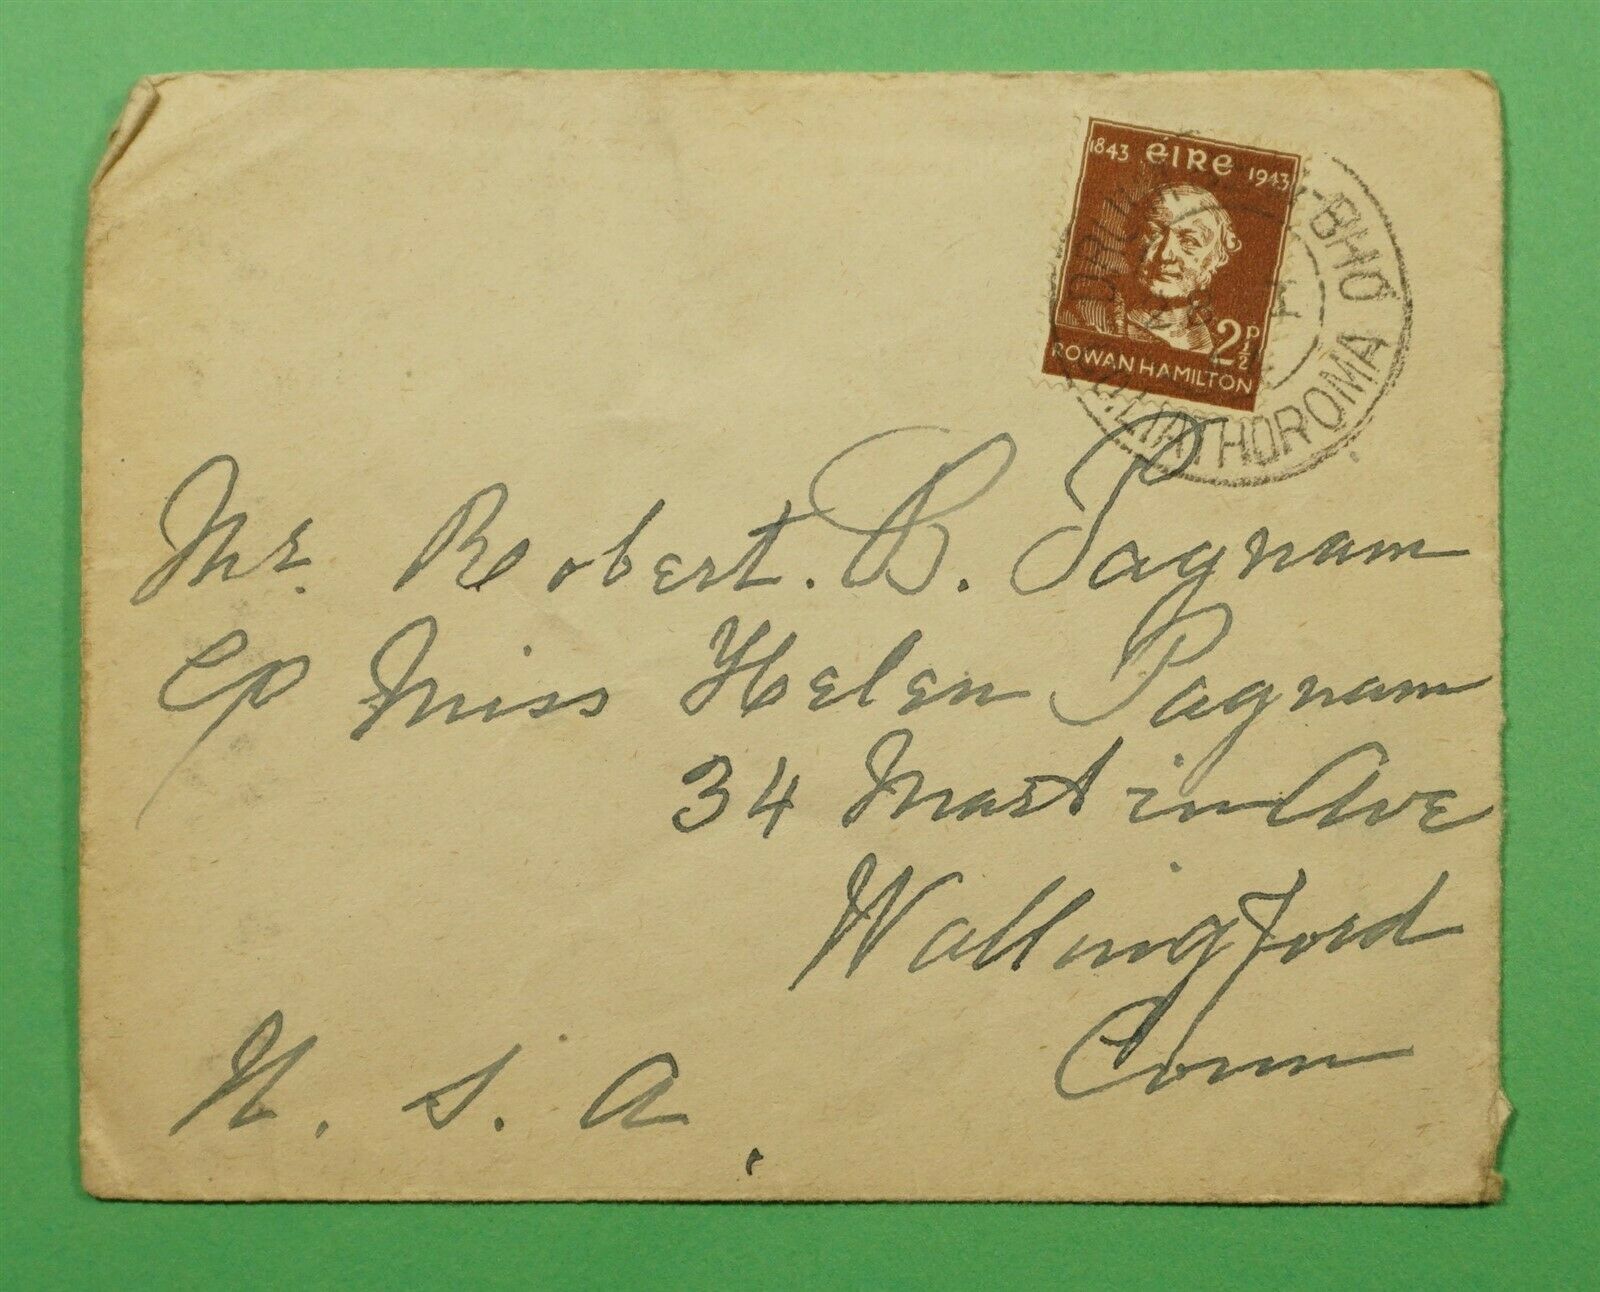 1843 éIRe 1943
2½P
ROWAN HAMILTON
-BHÓ
LIATHDROMA
Mr. Robert. B. Pagnam
c/o Miss Helen Pagnam
34 Martin Ave
Wallingford
Conn
U. S. A.